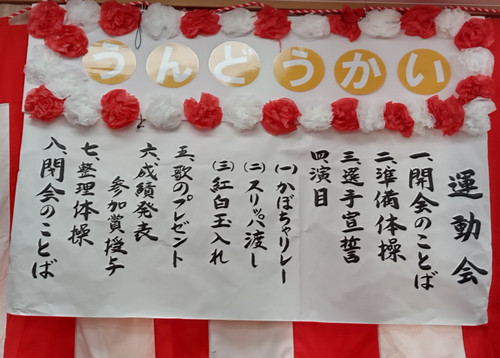 うんどうかい
運動会
一、開会のことば
二、準備体操
三、選手宣誓
四、演目
(一)かぼちゃリレー
(二)スリッパ渡し
(三)紅白玉入れ
五、歌のプレゼント
六、成績発表
参加賞授与
七、整理体操
八、閉会のことば